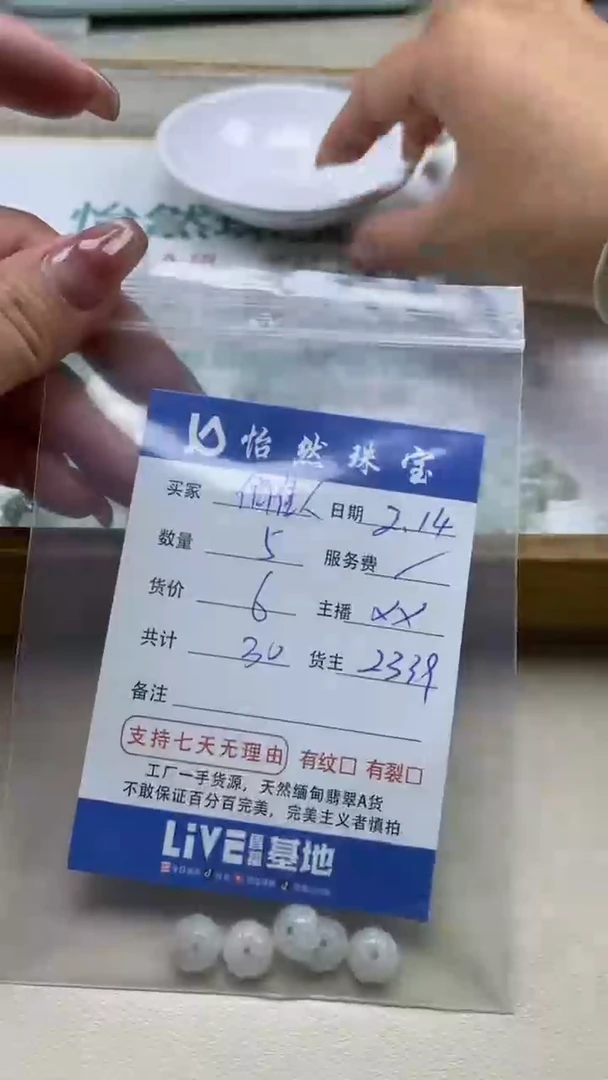 怡然珠
怡然珠宝
买家 日期 2.14
数量 5 服务费 /
货价 6 主播 XX
共计 30 货主 2339
备注
支持七天无理由 有纹□ 有裂□
工厂一手货源，天然缅甸翡翠A货
不敢保证百分百完美，完美主义者慎拍
LiVE直播基地